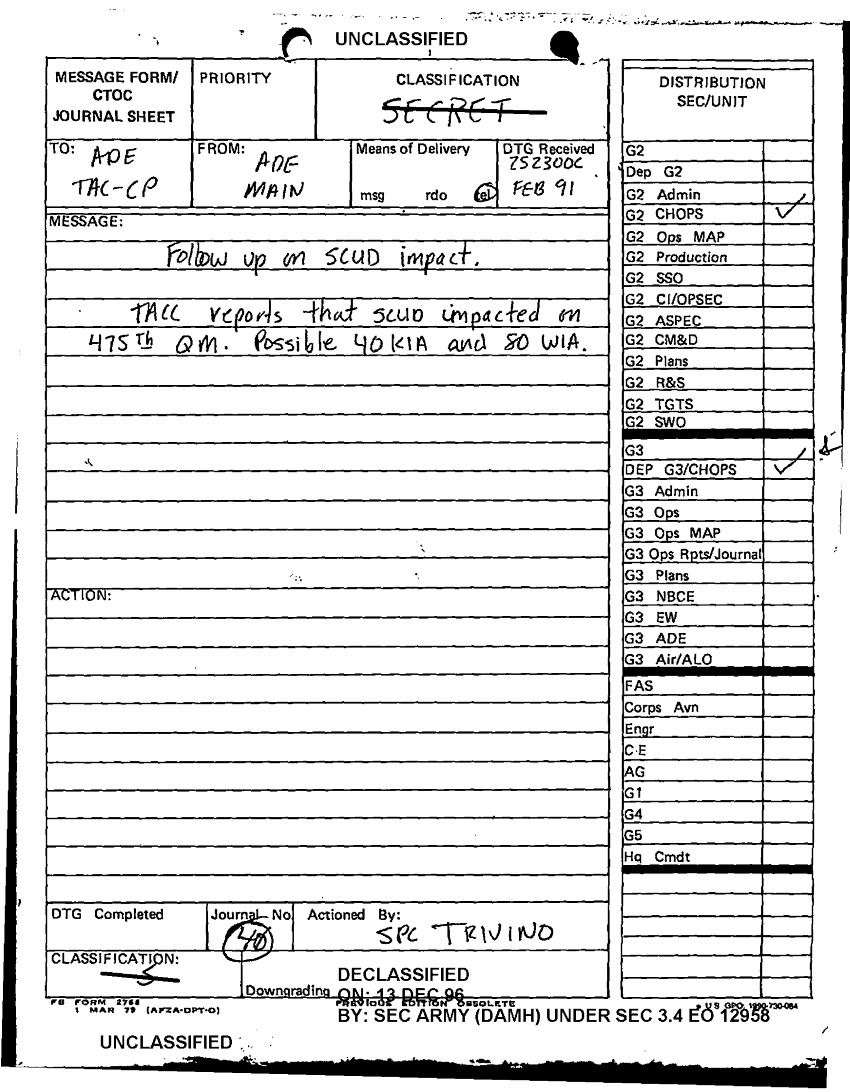 UNCLASSIFIED
MESSAGE FORM/
CTOC
JOURNAL SHEET
PRIORITY
CLASSIFICATION
SECRET
TO: ADE
TAC-CP
FROM: ADE
MAIN
Means of Delivery
msg rdo tel
DTG Received
252300C
FEB 91
MESSAGE:
Follow up on SCUD impact.
TACC reports that SCUD impacted on
475th QM. Possible 40 KIA and 80 WIA.
ACTION:
DTG Completed
Journal No
40
Actioned By:
SPC TRIVINO
CLASSIFICATION:
S
Downgrading
DECLASSIFIED
ON: 13 DEC 96
BY: SEC ARMY (DAMH) UNDER SEC 3.4 EO 12958
FB FORM 2768
1 MAR 79 (AFZA-DPT-O)
PREVIOUS EDITION OBSOLETE
U S GPO: 1990-730-084
UNCLASSIFIED
DISTRIBUTION
SEC/UNIT
G2
Dep G2
G2 Admin
G2 CHOPS
G2 Ops MAP
G2 Production
G2 SSO
G2 CI/OPSEC
G2 ASPEC
G2 CM&D
G2 Plans
G2 R&S
G2 TGTS
G2 SWO
G3
DEP G3/CHOPS
G3 Admin
G3 Ops
G3 Ops MAP
G3 Ops Rpts/Journal
G3 Plans
G3 NBCE
G3 EW
G3 ADE
G3 Air/ALO
FAS
Corps Avn
Engr
C-E
AG
G1
G4
G5
Hq Cmdt